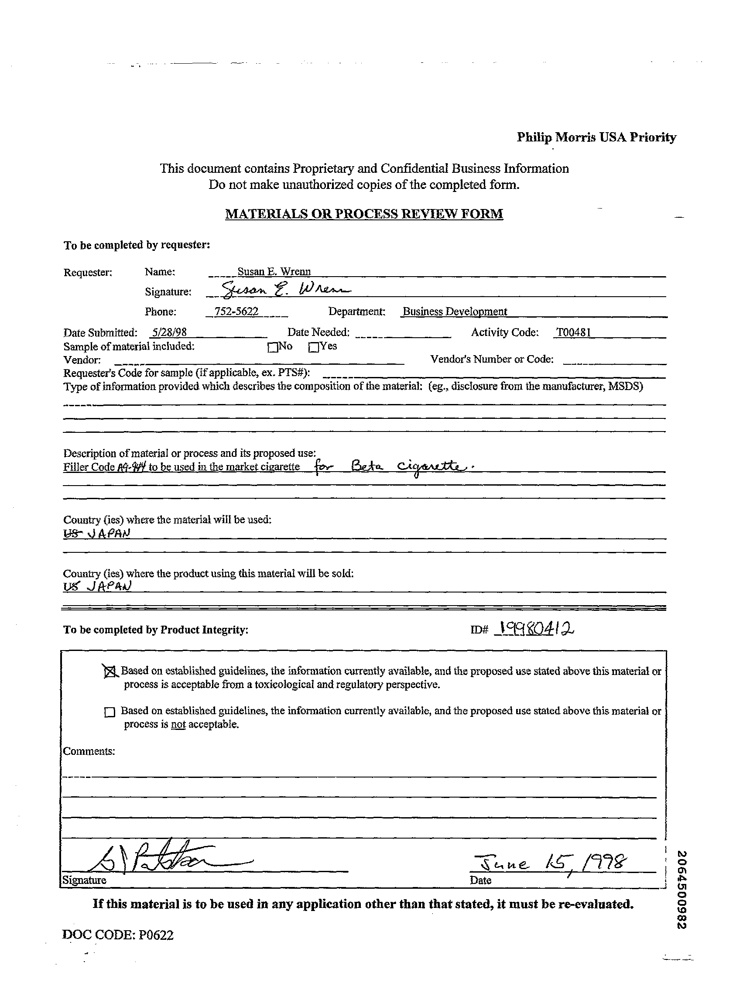 Philip Morris USA Priority
This document contains Proprietary and Confidential Business Information
Do not make unauthorized copies of the completed form.
MATERIALS OR PROCESS REVIEW FORM
To be completed by requester:
Requester: Name: Susan E. Wrenn
Signature: Susan E. Wrenn
Phone: 752-5622 Department: Business Development
Date Submitted: 5/28/98 Date Needed: Activity Code: T00481
Sample of material included: ☐No ☐Yes
Vendor: Vendor's Number or Code:
Requester's Code for sample (if applicable, ex. PTS#):
Type of information provided which describes the composition of the material: (eg., disclosure from the manufacturer, MSDS)
Description of material or process and its proposed use:
Filler Code to be used in the market cigarette for Beta cigarette.
Country (ies) where the material will be used:
US JAPAN
Country (ies) where the product using this material will be sold:
US JAPAN
To be completed by Product Integrity: ID# 19980412
☒ Based on established guidelines, the information currently available, and the proposed use stated above this material or
process is acceptable from a toxicological and regulatory perspective.
☐ Based on established guidelines, the information currently available, and the proposed use stated above this material or
process is not acceptable.
Comments:
June 15, 1998
Signature Date
If this material is to be used in any application other than that stated, it must be re-evaluated.
DOC CODE: P0622
2064500982